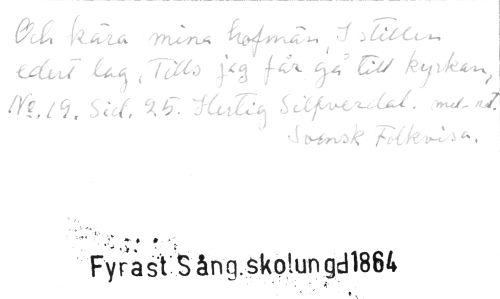 Och kära mina hofmän, I stillen
edert lag, Tills jag får gå till kyrkan,
No. 19. Sid. 25. Hertig Silfverdal. mel. nt.
Svensk Folkvisa.
Fyrast.Sång.skolungd1864